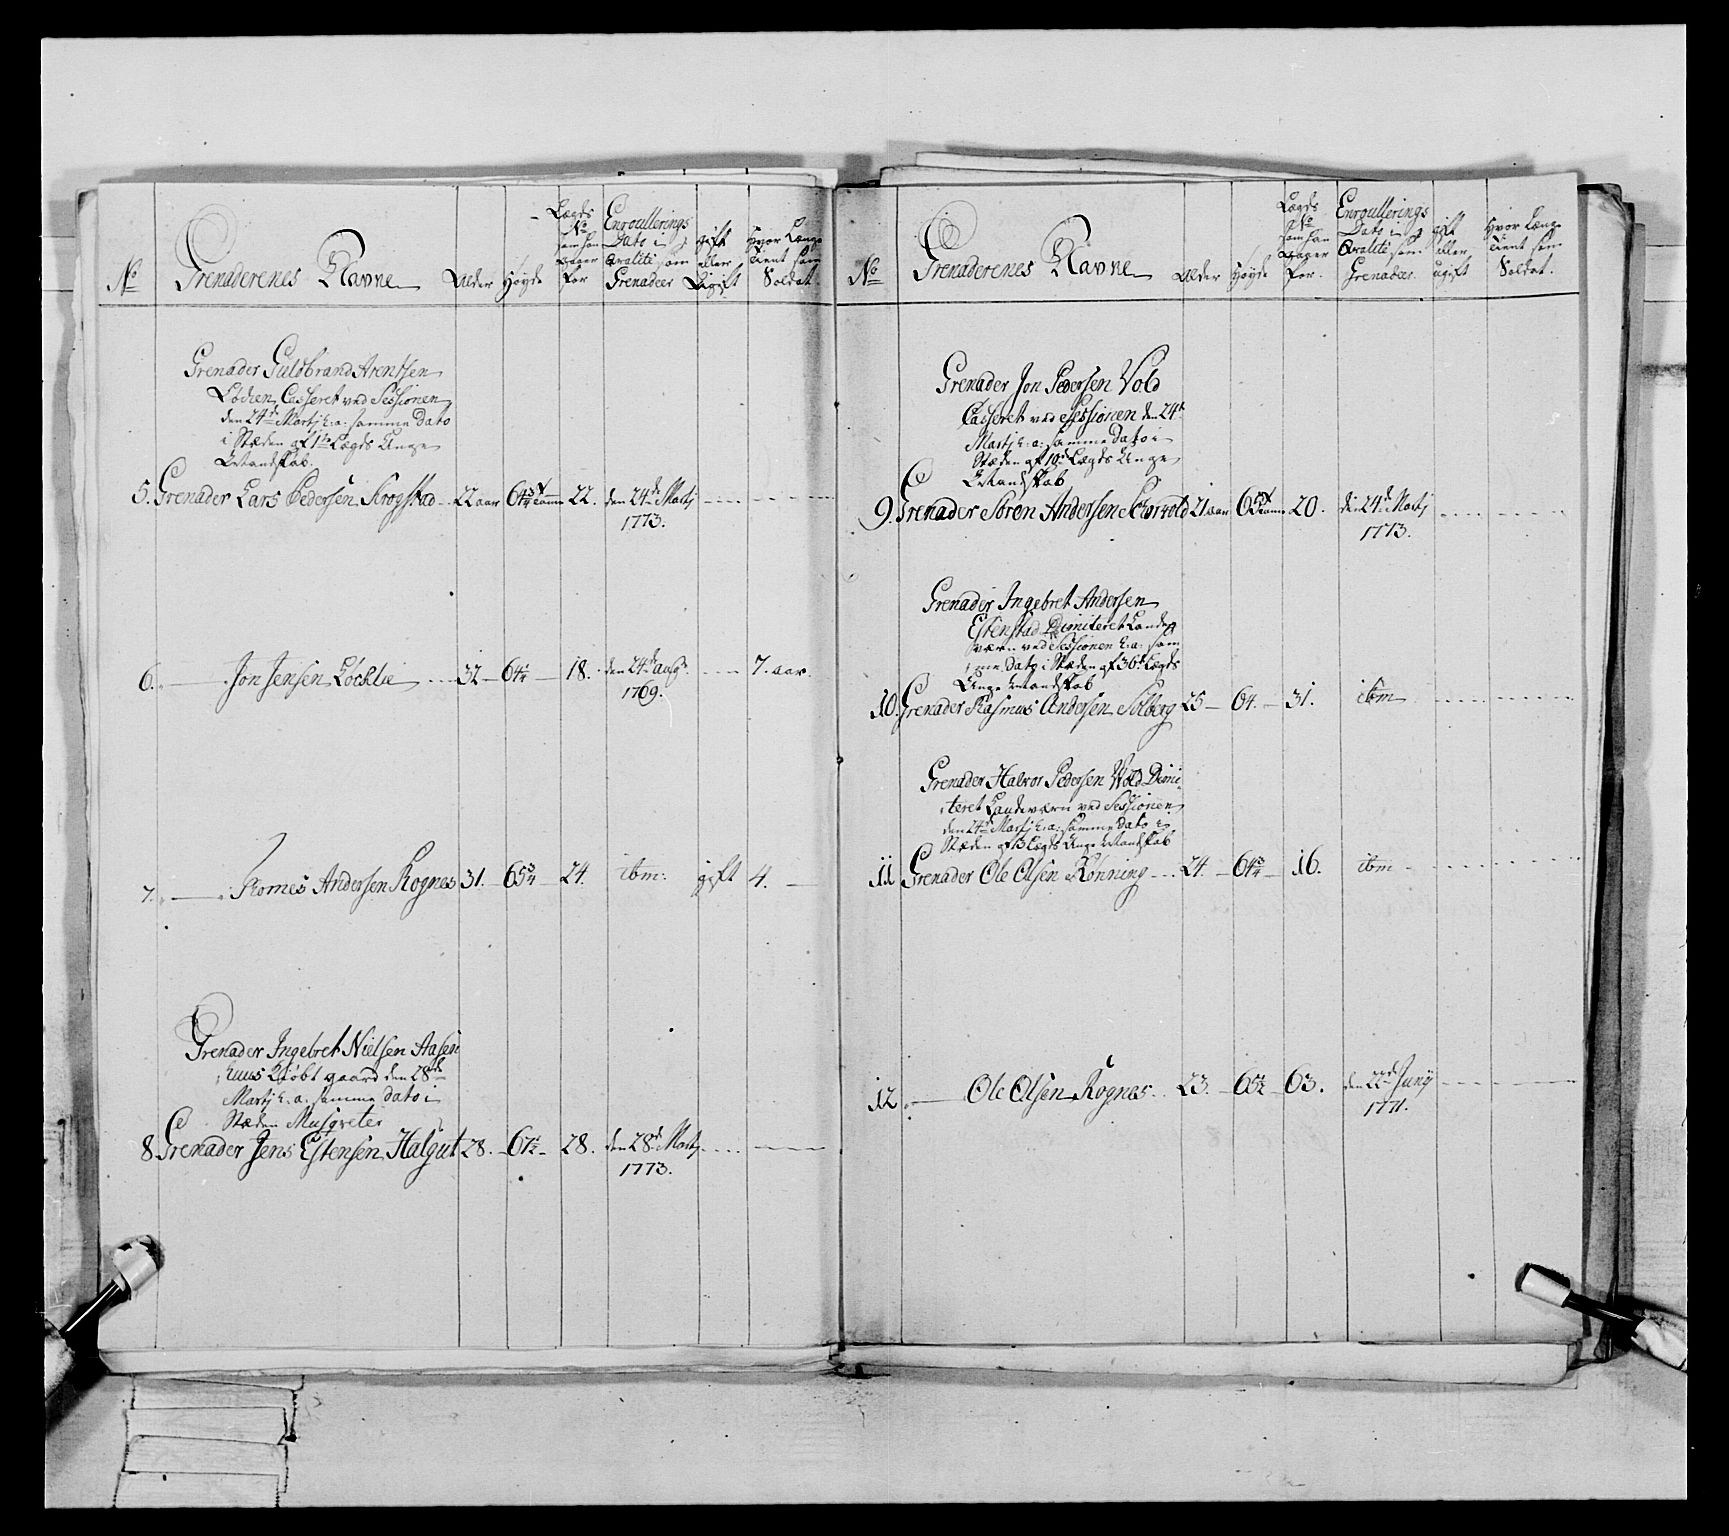 No
Grenaderenes Navne
Alder
Høyde
Lægds
No
som han
staaer
for
Enroullerings
Dato i
Qvalité som
Grenadeer
gift
eller
Ugift
Hvor Længe
Tient som
Soldat.
Grenader Guldbrand Arentsen
Lødien Casseret ved Sessionen
den 24de Martj h: a: samme Dato
i Stæden af 1te Lægds Unge
Mandskab.
5. Grenader Lars Pedersen Krogstad 22 aar 64 3/4 22. den 24de Martj
1773.
6. Jon Jensen Løchlie 32 64 1/4 18. den 24de augs 7. aar.
1769.
7. Thomes Andersen Rognes 31. 65 3/4 24. ibm: gift 4.
Grenader Ingebret Nielsen Aasen
huus Kiøbt gaard den 28de
Martj h: a: samme dato i
Stæden Musqveter
8 Grenader Jens Estensen Halgut 28. 67 1/2 28. den 28de Martj
1773.
No
Grenaderenes Navne
Alder
Høyde
Lægds
No
som han
staaer
for.
Enroullerings
Dato i
Qvalité som
Grenadeer.
gift
eller
ugift
Hvor Længe
Tient som
Soldat.
Grenader Jon Pedersen Vold
Casseret ved Sessionen den 24de
Martj h: a: samme Dato i
Stæden af 10de Lægds Unge
Mandskab
9. Grenader Søren Andersen 21 aar 65 20. den 24de Martj
1773.
Grenader Ingebret Andersen
Estenstad Dimiteret Lande
værn ved Sessionen h: a: sam
me dato i Stæden af 36te Lægds
Unge Mandskab
10. Grenader Rasmus Andersen Solberg 25 64. 31. ibm
Grenader Halvor Pedersen Wold Dimi
teret Landeværn ved Sessionen
den 24de Martj h: a: samme dato i
Stæden af 13 Lægds Unge Mandskab
11 Grenader Ole Olsen Rønning 24. 64 3/4 16. ibm
12 Ole Olsen Rognes 23. 65 1/2 63. den 22de Junij
1771.